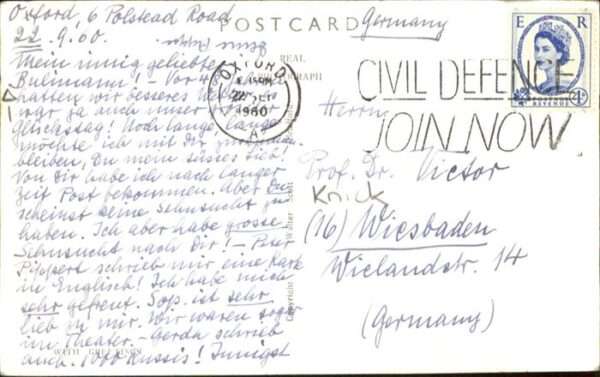 Oxford, 6 Polstead Road
22.9.60.
Mein innig geliebter
Bulimann! Vor 4
hatten wir besseres
war ja auch unser
Glückstag! Noch lange, lange
möchte ich mit Dir zusammen
bleiben, Du mein süsses Lieb!
Von Dir habe ich nach langer
Zeit Post bekommen. Aber Du
scheinst keine Sehnsucht zu
haben. Ich aber habe grosse
Sehnsucht nach Dir! - Peter
Pippert schrieb mir eine Karte
in Englisch! Ich habe mich
sehr gefreut. ist sehr
lieb zu mir. Wir waren sogar
im Theater. - Gerda schrieb
auch. 1000 Kussis! Innigst
WITH GREETINGS
POSTCARD
REAL
PHOTOGRAPH
Copyright Walter Scott
Germany
OXFORD
22 SEP
1960
A
CIVIL DEFENCE
JOIN NOW
E R
Herrn
Prof. Dr. Victor
Knick
(16) Wiesbaden
Wielandstr. 14
(Germany)